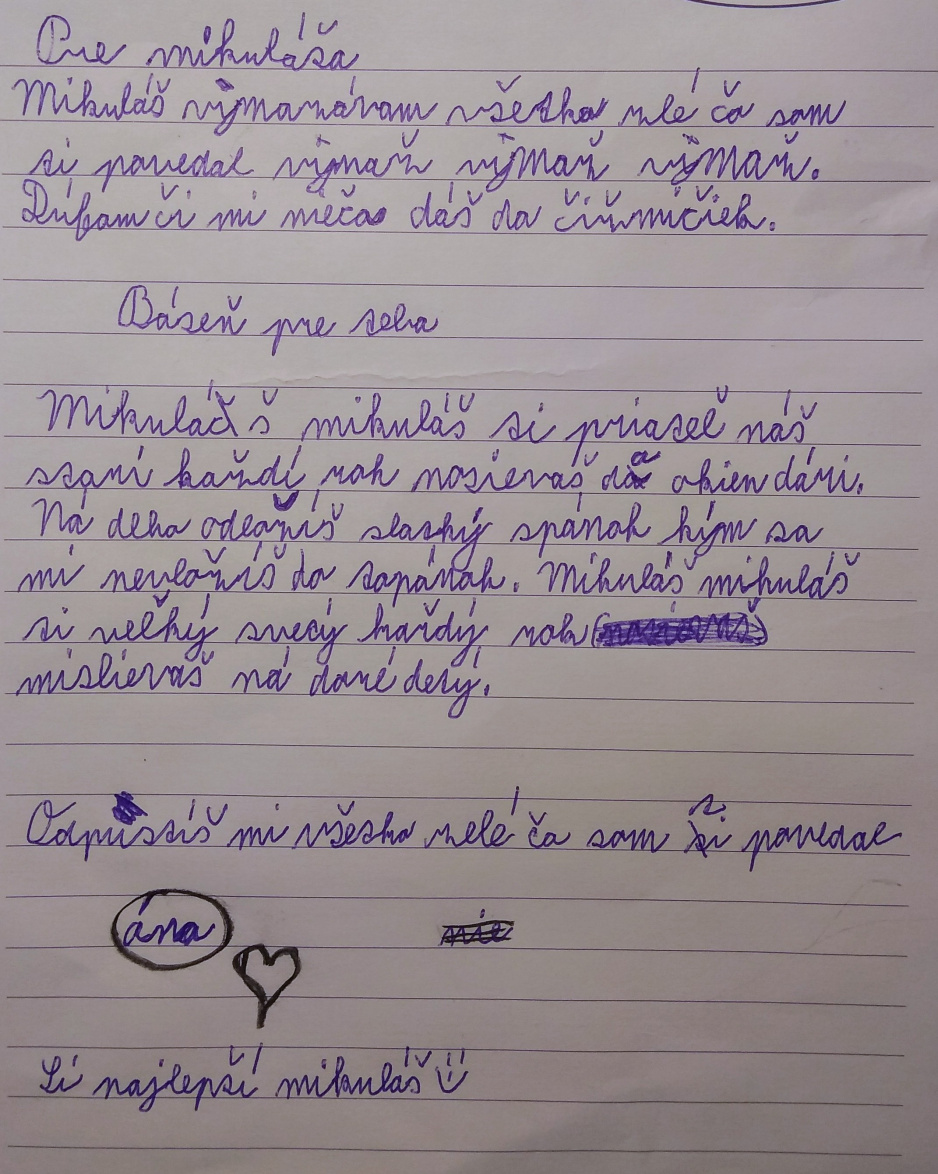 Pre mikuláša
Mikuláš výmazávam všetko zlé čo som
si povedal výmaž výmaž výmaž.
Dúfam či mi niečo dáš do čižmičiek.
Báseň pre teba
Mikuláš mikuláš si priateľ náš
starí každí rok nosievaš do okien dári.
Ná odložíš slatký spánok kým sa
mi nevložíš do topánok. Mikuláš mikuláš
si veľký svetý každý rok
mislievaš ná detý.
Odpustíš mi všetko zlé čo som si povedal
áno nie
Si najlepší mikuláš